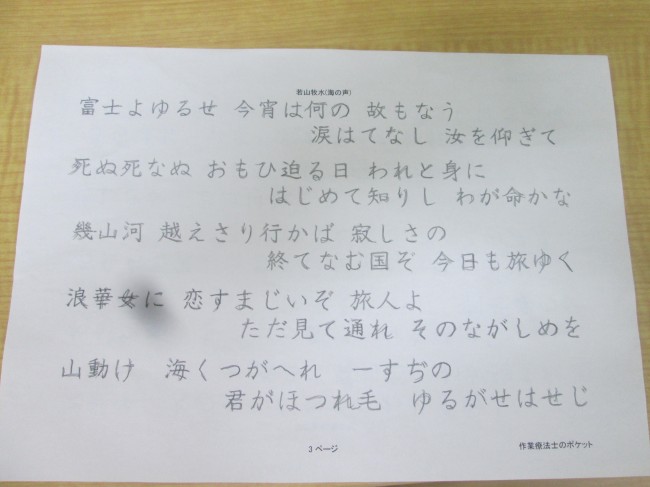 若山牧水(海の声)
富士よゆるせ 今宵は何の 故もなう
涙はてなし 汝を仰ぎて
死ぬ死なぬ おもひ迫る日 われと身に
はじめて知りし わが命かな
幾山河 越えさり行かば 寂しさの
終てなむ国ぞ 今日も旅ゆく
浪華女に 恋すまじいぞ 旅人よ
ただ見て通れ そのながしめを
山動け 海くつがへれ 一すぢの
君がほつれ毛 ゆるがせはせじ
3 ページ
作業療法士のポケット